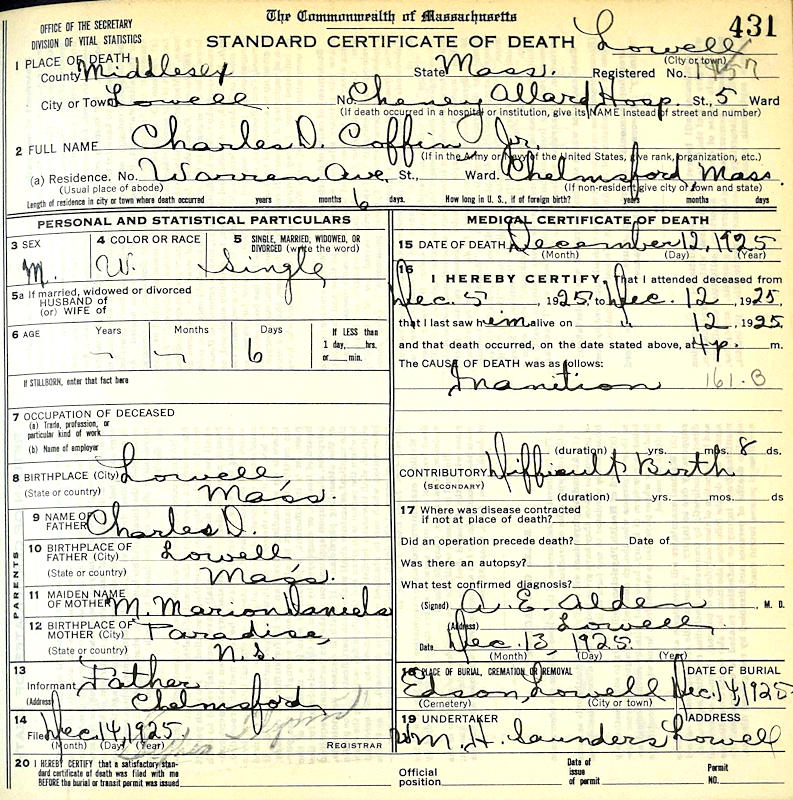 The Commonwealth of Massachusetts
431
OFFICE OF THE SECRETARY
DIVISION OF VITAL STATISTICS
STANDARD CERTIFICATE OF DEATH Lowell
(City or town)
1 PLACE OF DEATH
County Middlesex State Mass. Registered No.
City or Town Lowell No. Cheney Allard Hosp. St., 5 Ward
(If death occurred in a hospital or institution, give its NAME instead of street and number)
2 FULL NAME Charles D. Coffin Jr.
(If in the Army or Navy of the United States, give rank, organization, etc.)
(a) Residence. No. Warren Ave. St., Ward. Chelmsford Mass.
(Usual place of abode) (If non-resident give city or town and state)
Length of residence in city or town where death occurred years months 6 days. How long in U. S., if of foreign birth? years months days
PERSONAL AND STATISTICAL PARTICULARS
3 SEX M.
4 COLOR OR RACE W.
5 SINGLE, MARRIED, WIDOWED, OR DIVORCED (write the word) Single
5a If married, widowed or divorced
HUSBAND of
(or) WIFE of
6 AGE Years – Months – Days 6 If LESS than 1 day, hrs. or min.
If STILLBORN, enter that fact here
7 OCCUPATION OF DECEASED
(a) Trade, profession, or
particular kind of work
(b) Name of employer
8 BIRTHPLACE (City) Lowell
(State or country) Mass.
PARENTS
9 NAME OF FATHER Charles D.
10 BIRTHPLACE OF FATHER (City) Lowell
(State or country) Mass.
11 MAIDEN NAME OF MOTHER M. Marion Daniels
12 BIRTHPLACE OF MOTHER (City) Paradise,
(State or country) N.S.
13
Informant Father
(Address) Chelmsford
14
Filed Dec. 14, 1925
(Month) (Day) (Year) REGISTRAR
MEDICAL CERTIFICATE OF DEATH
15 DATE OF DEATH December 12, 1925
(Month) (Day) (Year)
16
I HEREBY CERTIFY, That I attended deceased from
Dec. 5, 1925, to Dec. 12, 1925,
that I last saw him alive on " 12, 1925.
and that death occurred, on the date stated above, at 4 p. m.
The CAUSE OF DEATH was as follows:
Inanition 161.B
(duration) yrs. mos. 8 ds.
CONTRIBUTORY Difficult Birth
(SECONDARY)
(duration) yrs. mos. ds
17 Where was disease contracted
if not at place of death?
Did an operation precede death? Date of
Was there an autopsy?
What test confirmed diagnosis?
(Signed) A. E. Alden, M. D.
(Address) Lowell,
Date Dec. 13, 1925.
(Month) (Day) (Year)
18 PLACE OF BURIAL, CREMATION, OR REMOVAL DATE OF BURIAL
Edson, Lowell Dec. 14, 1925
(Cemetery) (City or town)
19 UNDERTAKER ADDRESS
Wm. H. Saunders Lowell
20 I HEREBY CERTIFY that a satisfactory stan-
dard certificate of death was filed with me
BEFORE the burial or transit permit was issued
Official position
Date of issue of permit
Permit NO.